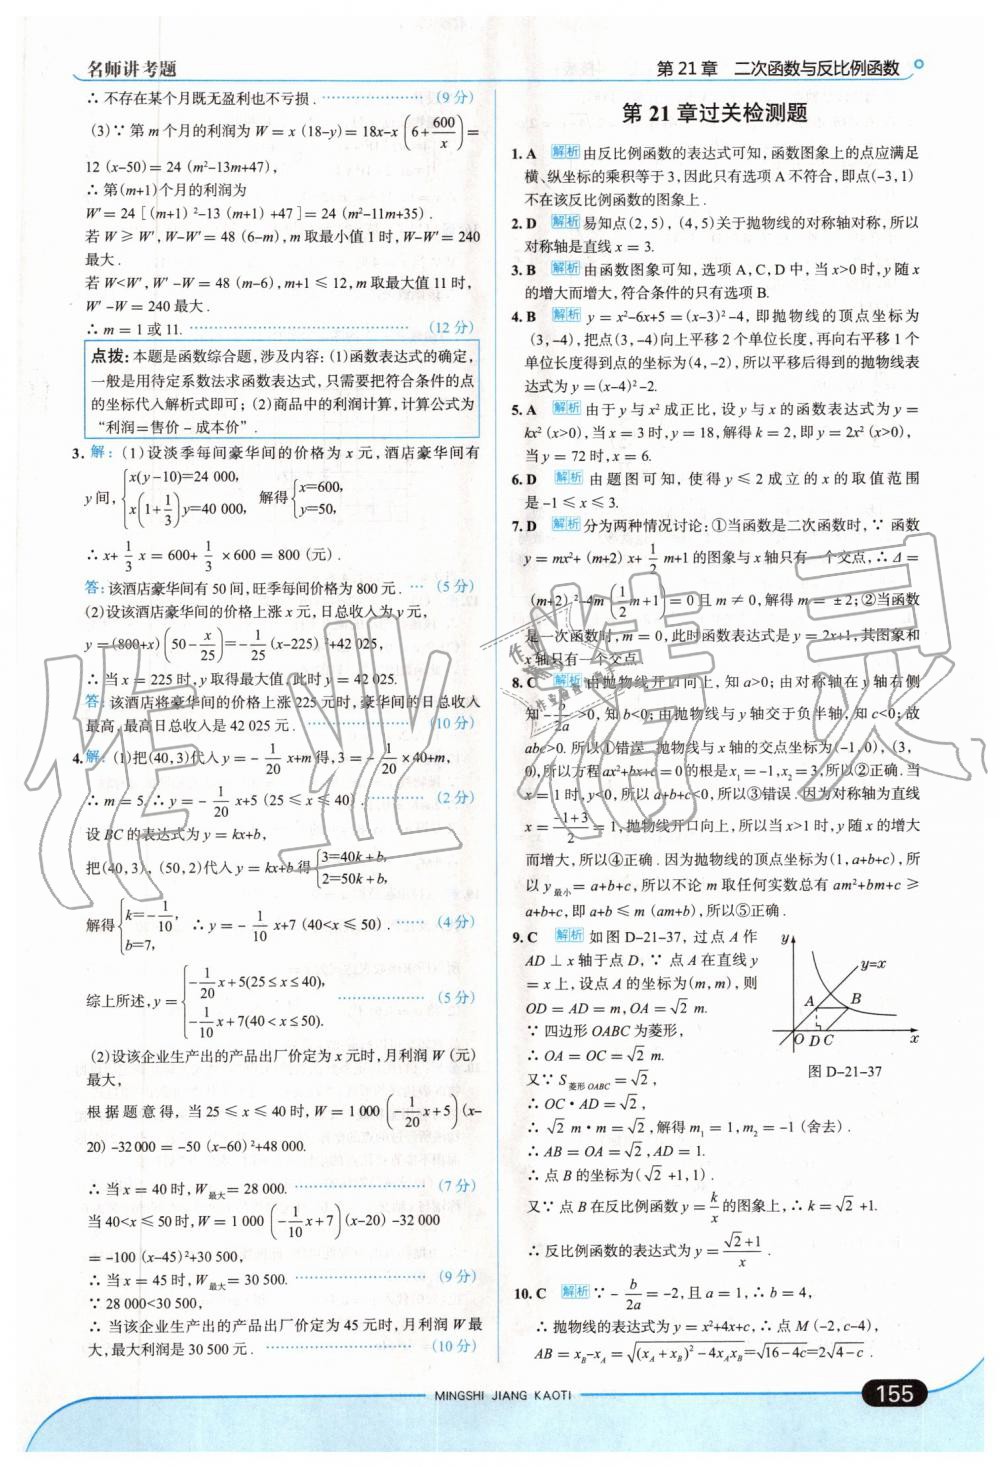 名师讲考题
第 21 章　二次函数与反比例函数
∴ 不存在某个月既无盈利也不亏损. ………………… (9 分)
(3)∵ 第 m 个月的利润为 W = x (18-y) = 18x-x(6+600/x) =
12 (x-50) = 24 (m²-13m+47),
∴ 第(m+1)个月的利润为
W′ = 24 [(m+1)²-13 (m+1) +47] = 24 (m²-11m+35).
若 W ≥ W′, W-W′ = 48 (6-m), m 取最小值 1 时, W-W′ = 240
最大.
若 W<W′, W′ -W = 48 (m-6), m+1 ≤ 12, m 取最大值 11 时,
W′ -W = 240 最大.
∴ m = 1 或 11. ………………… (12 分)
点拨: 本题是函数综合题, 涉及内容: (1)函数表达式的确定,
一般是用待定系数法求函数表达式, 只需要把符合条件的点
的坐标代入解析式即可; (2)商品中的利润计算, 计算公式为
“利润=售价 - 成本价”.
3. 解: (1)设淡季每间豪华间的价格为 x 元, 酒店豪华间有
y 间, { x(y-10)=24 000, x(1+1/3)y=40 000, 解得 { x=600, y=50,
∴ x+1/3 x = 600+1/3 ×600 = 800 (元).
答: 该酒店豪华间有 50 间, 旺季每间价格为 800 元. … (5 分)
(2)设该酒店豪华间的价格上涨 x 元, 日总收入为 y 元,
y = (800+x)(50-x/25) = -1/25 (x-225)²+42 025,
∴ 当 x = 225 时, y 取得最大值, 此时 y = 42 025.
答: 该酒店将豪华间的价格上涨 225 元时, 豪华间的日总收入
最高, 最高日总收入是 42 025 元. ………… (10 分)
4. 解: (1)把(40, 3)代入 y = -1/20 x+m 得, 3 = -1/20 ×40+m,
∴ m = 5, ∴ y = -1/20 x+5 (25 ≤ x ≤ 40). ……… (2 分)
设 BC 的表达式为 y = kx+b,
把(40, 3), (50, 2)代入 y = kx+b 得 { 3=40k+b, 2=50k+b,
解得 { k=-1/10, b=7, ∴ y = -1/10 x+7 (40<x ≤ 50). …… (4 分)
综上所述, y = { -1/20 x+5(25≤x≤40), -1/10 x+7(40<x≤50). ………… (5 分)
(2)设该企业生产出的产品出厂价定为 x 元时, 月利润 W (元)
最大,
根据题意得, 当 25 ≤ x ≤ 40 时, W = 1 000 (-1/20 x+5)(x-
20) -32 000 = -50 (x-60)²+48 000.
∴ 当 x = 40 时, W最大 = 28 000. ………………… (7 分)
当 40<x ≤ 50 时, W = 1 000 (-1/10 x+7)(x-20) -32 000
= -100 (x-45)²+30 500,
∴ 当 x = 45 时, W最大 = 30 500. ………………… (9 分)
∵ 28 000<30 500,
∴ 当该企业生产出的产品出厂价定为 45 元时, 月利润 W 最
大, 最大利润是 30 500 元. ………………… (10 分)
第 21 章过关检测题
1. A 解析 由反比例函数的表达式可知, 函数图象上的点应满足
横、纵坐标的乘积等于 3, 因此只有选项 A 不符合, 即点(-3, 1)
不在该反比例函数的图象上.
2. D 解析 易知点(2, 5), (4, 5)关于抛物线的对称轴对称, 所以
对称轴是直线 x = 3.
3. B 解析 由函数图象可知, 选项 A, C, D 中, 当 x>0 时, y 随 x
的增大而增大, 符合条件的只有选项 B.
4. B 解析 y = x²-6x+5 = (x-3)²-4, 即抛物线的顶点坐标为
(3, -4), 把点(3, -4)向上平移 2 个单位长度, 再向右平移 1 个
单位长度得到点的坐标为(4, -2), 所以平移后得到的抛物线表
达式为 y = (x-4)²-2.
5. A 解析 由于 y 与 x² 成正比, 设 y 与 x 的函数表达式为 y =
kx² (x>0), 当 x = 3 时, y = 18, 解得 k = 2, 即 y = 2x² (x>0),
当 y = 72 时, x = 6.
6. D 解析 由题图可知, 使得 y ≤ 2 成立的 x 的取值范围
是 -1 ≤ x ≤ 3.
7. D 解析 分为两种情况讨论: ①当函数是二次函数时, ∵ 函数
y = mx²+ (m+2) x+ 1/2 m+1 的图象与 x 轴只有一个交点, ∴ Δ =
(m+2)²-4m(1/2 m+1) = 0 且 m ≠ 0, 解得 m = ±2; ②当函数
是一次函数时, m = 0, 此时函数表达式是 y = 2x+1, 其图象和
x 轴只有一个交点.
8. C 解析 由抛物线开口向上, 知 a>0; 由对称轴在 y 轴右侧
知 -b/2a >0, 知 b<0; 由抛物线与 y 轴交于负半轴, 知 c<0; 故
abc>0. 所以①错误. 抛物线与 x 轴的交点坐标为(-1, 0), (3,
0), 所以方程 ax²+bx+c = 0 的根是 x₁ = -1, x₂ = 3, 所以②正确. 当
x = 1 时, y<0, 所以 a+b+c<0, 所以③错误. 因为对称轴为直线
x = (-1+3)/2 = 1, 抛物线开口向上, 所以当 x>1 时, y 随 x 的增大
而增大, 所以④正确. 因为抛物线的顶点坐标为(1, a+b+c), 所
以 y最小 = a+b+c, 所以不论 m 取任何实数总有 am²+bm+c ≥
a+b+c, 即 a+b ≤ m (am+b), 所以⑤正确.
9. C 解析 如图 D-21-37, 过点 A 作
AD ⊥ x 轴于点 D, ∵ 点 A 在直线 y
= x 上, 设点 A 的坐标为(m, m), 则
OD = AD = m, OA = √2 m.
∵ 四边形 OABC 为菱形,
∴ OA = OC = √2 m.
又∵ S菱形OABC = √2,
∴ OC·AD = √2,
∴ √2 m·m = √2, 解得 m₁ = 1, m₂ = -1 (舍去).
∴ AB = OA = √2, AD = 1.
∴ 点 B 的坐标为(√2 +1, 1).
又∵ 点 B 在反比例函数 y = k/x 的图象上, ∴ k = √2 +1.
∴ 反比例函数的表达式为 y = (√2+1)/x.
y
y=x
A
B
O D C
x
图 D-21-37
10. C 解析 ∵ -b/2a = -2, 且 a = 1, ∴ b = 4,
∴ 抛物线的表达式为 y = x²+4x+c, ∴ 点 M (-2, c-4),
AB = x_B-x_A = √((x_A+x_B)²-4x_A x_B) = √(16-4c) = 2√(4-c).
作业精灵
MINGSHI JIANG KAOTI
155